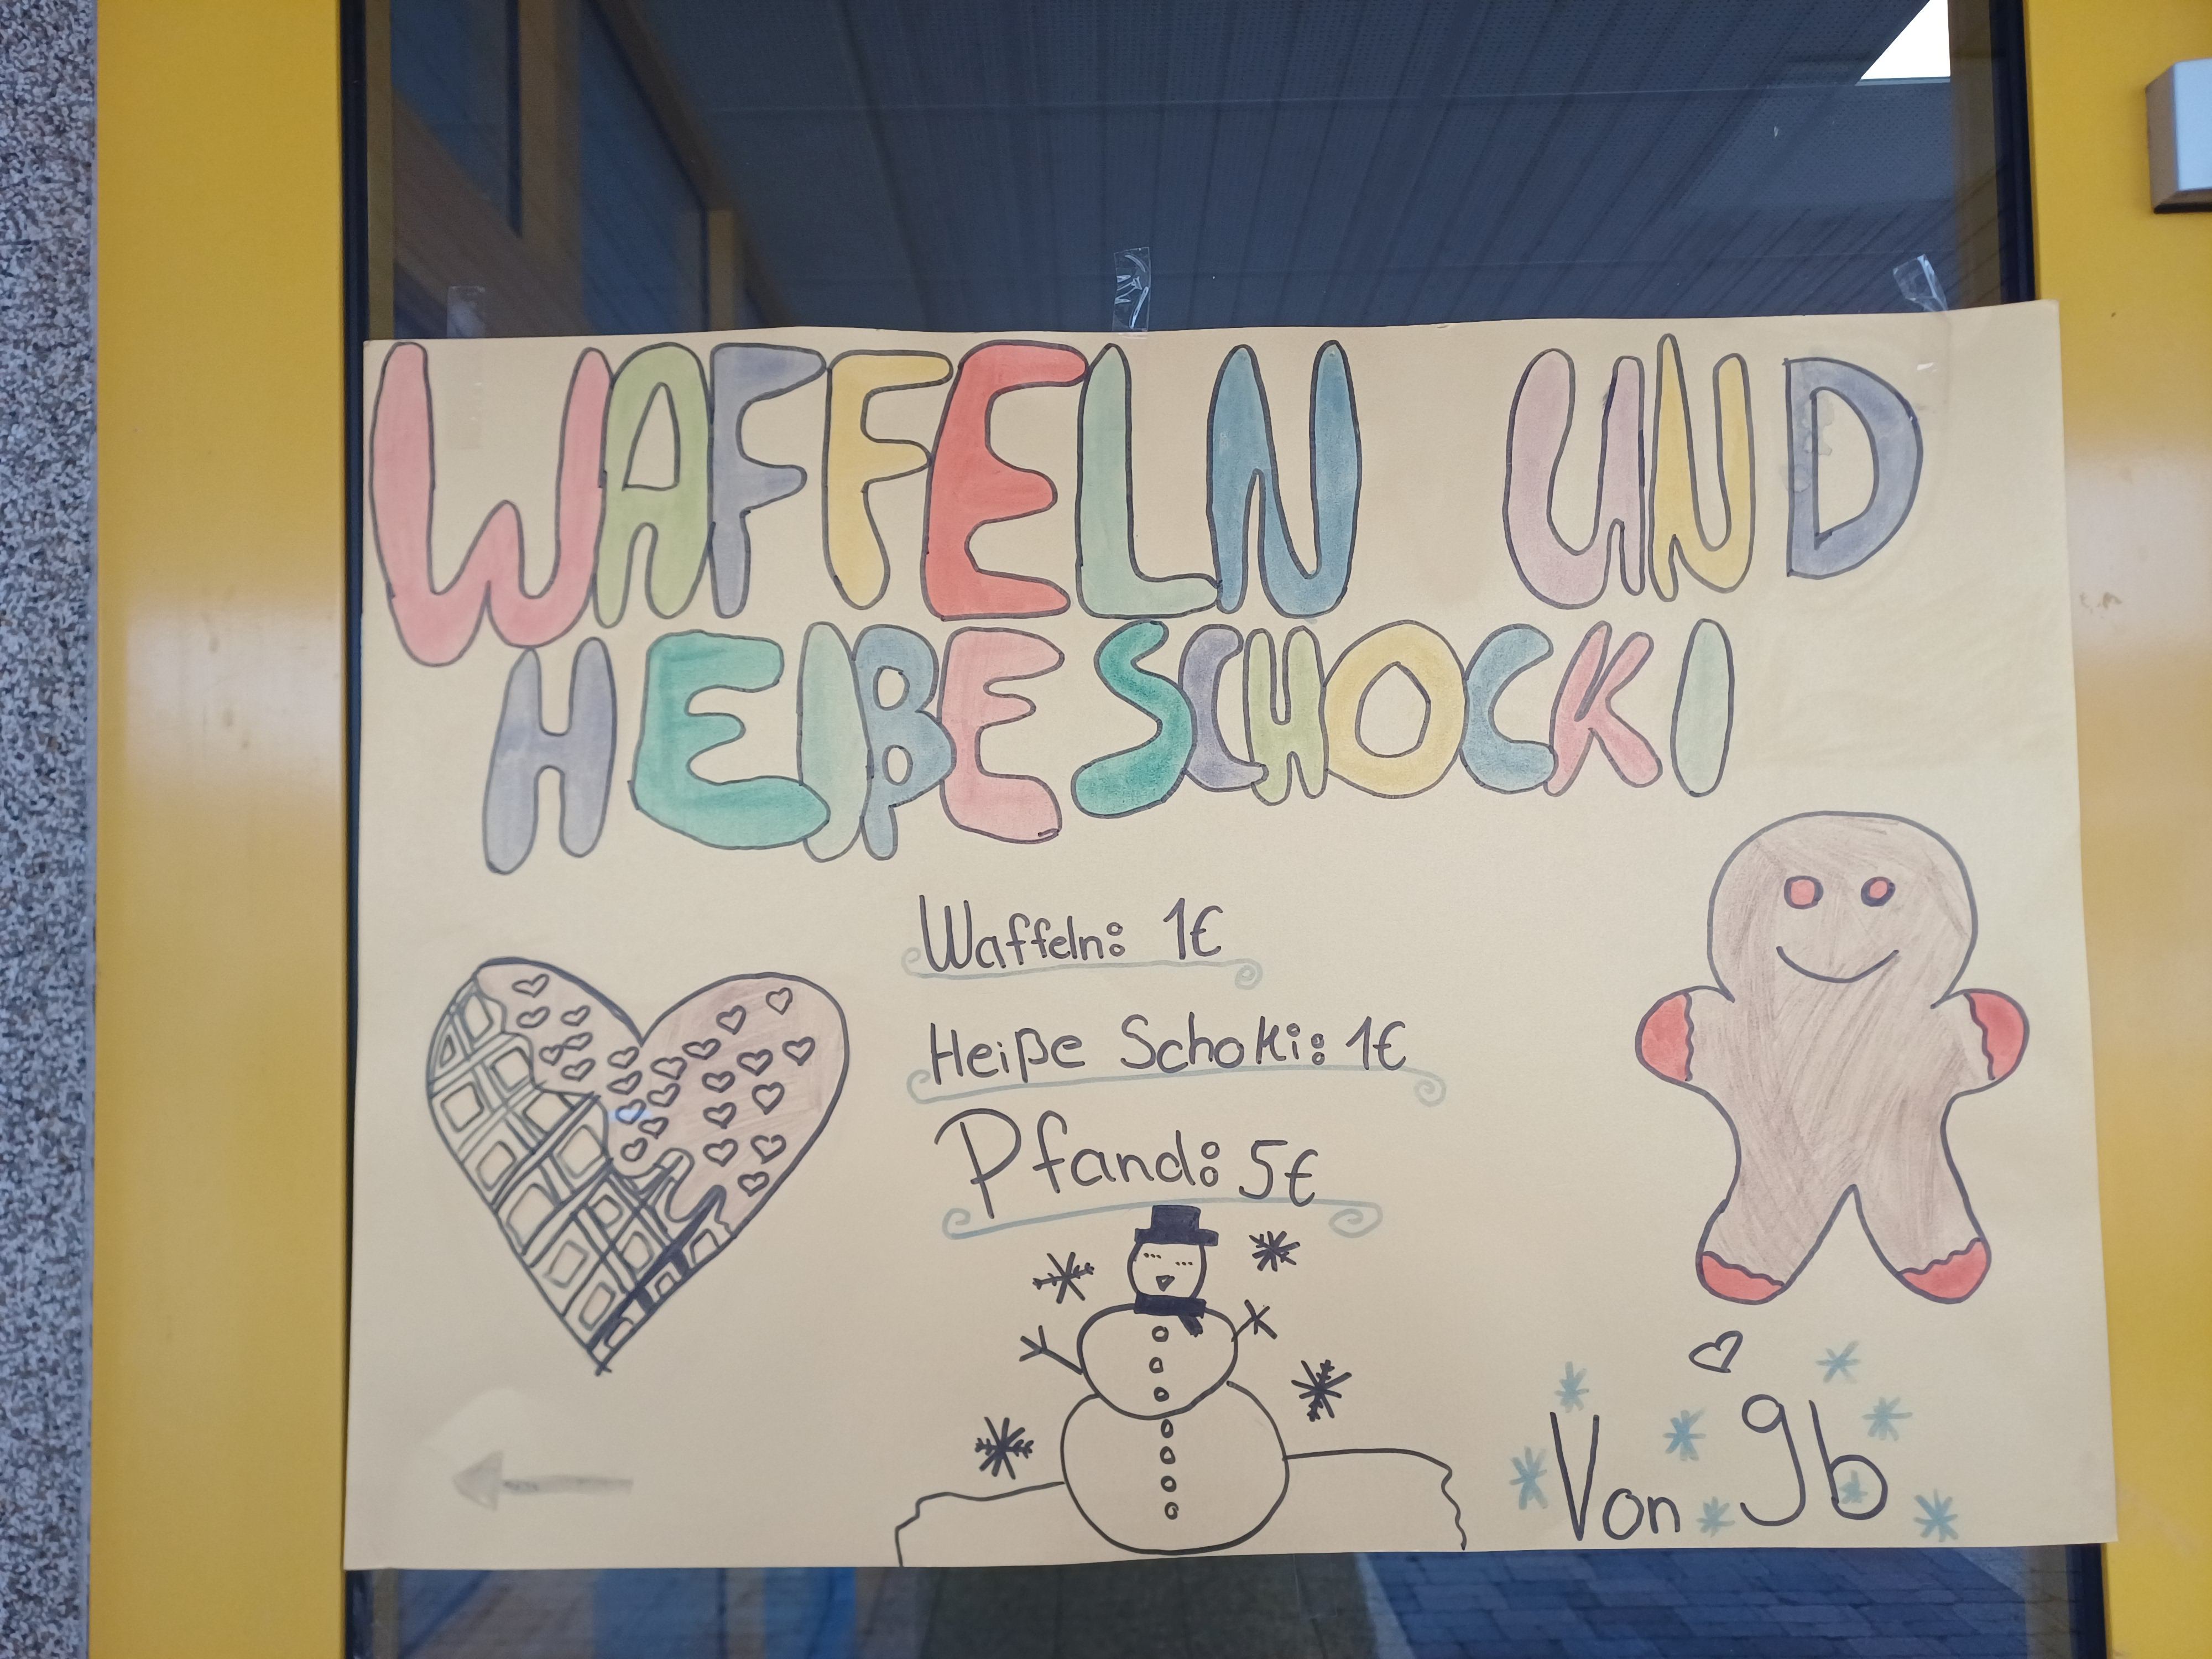 WAFFELN UND
HEIßE SCHOCKI
Waffeln: 1€
Heiße Schoki: 1€
Pfand: 5€
Von 9b